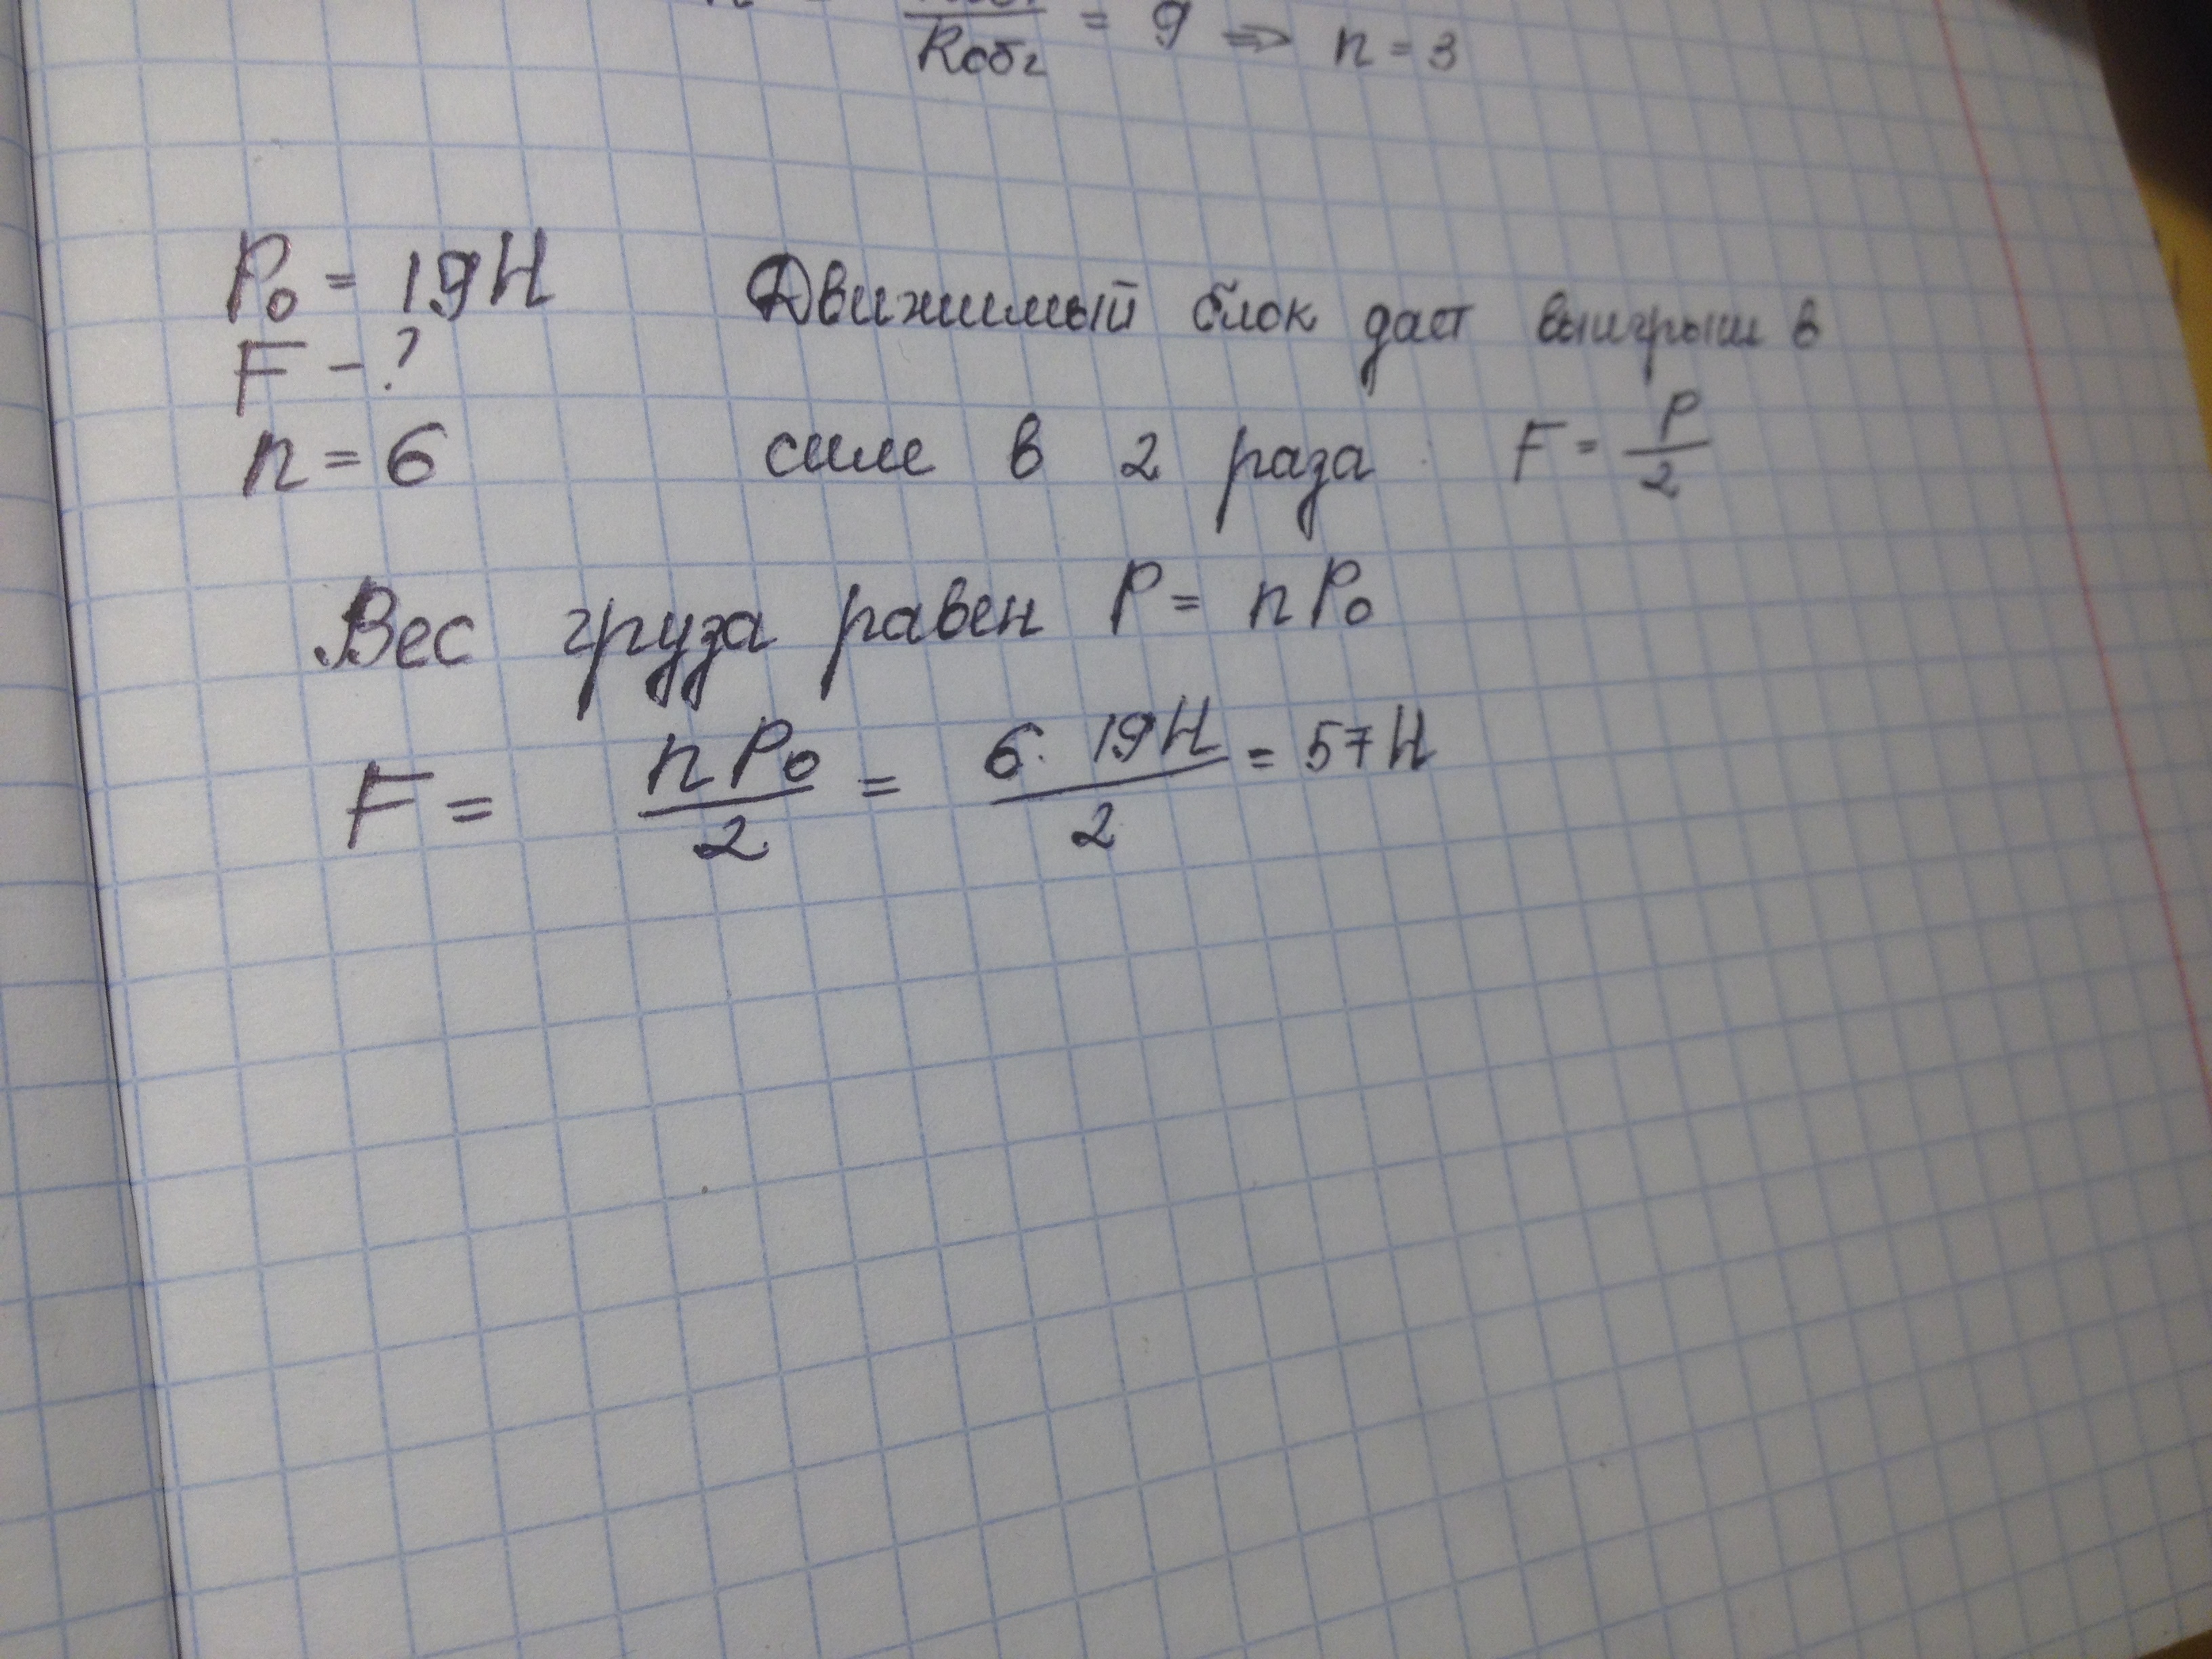 Rоб2 = 9 => n = 3
P₀ = 19Н Движимый блок даст выигрыш в
F - ?
n = 6 силе в 2 раза F = P/2
Вес груза равен P = nP₀
F = nP₀/2 = 6·19Н/2 = 57Н